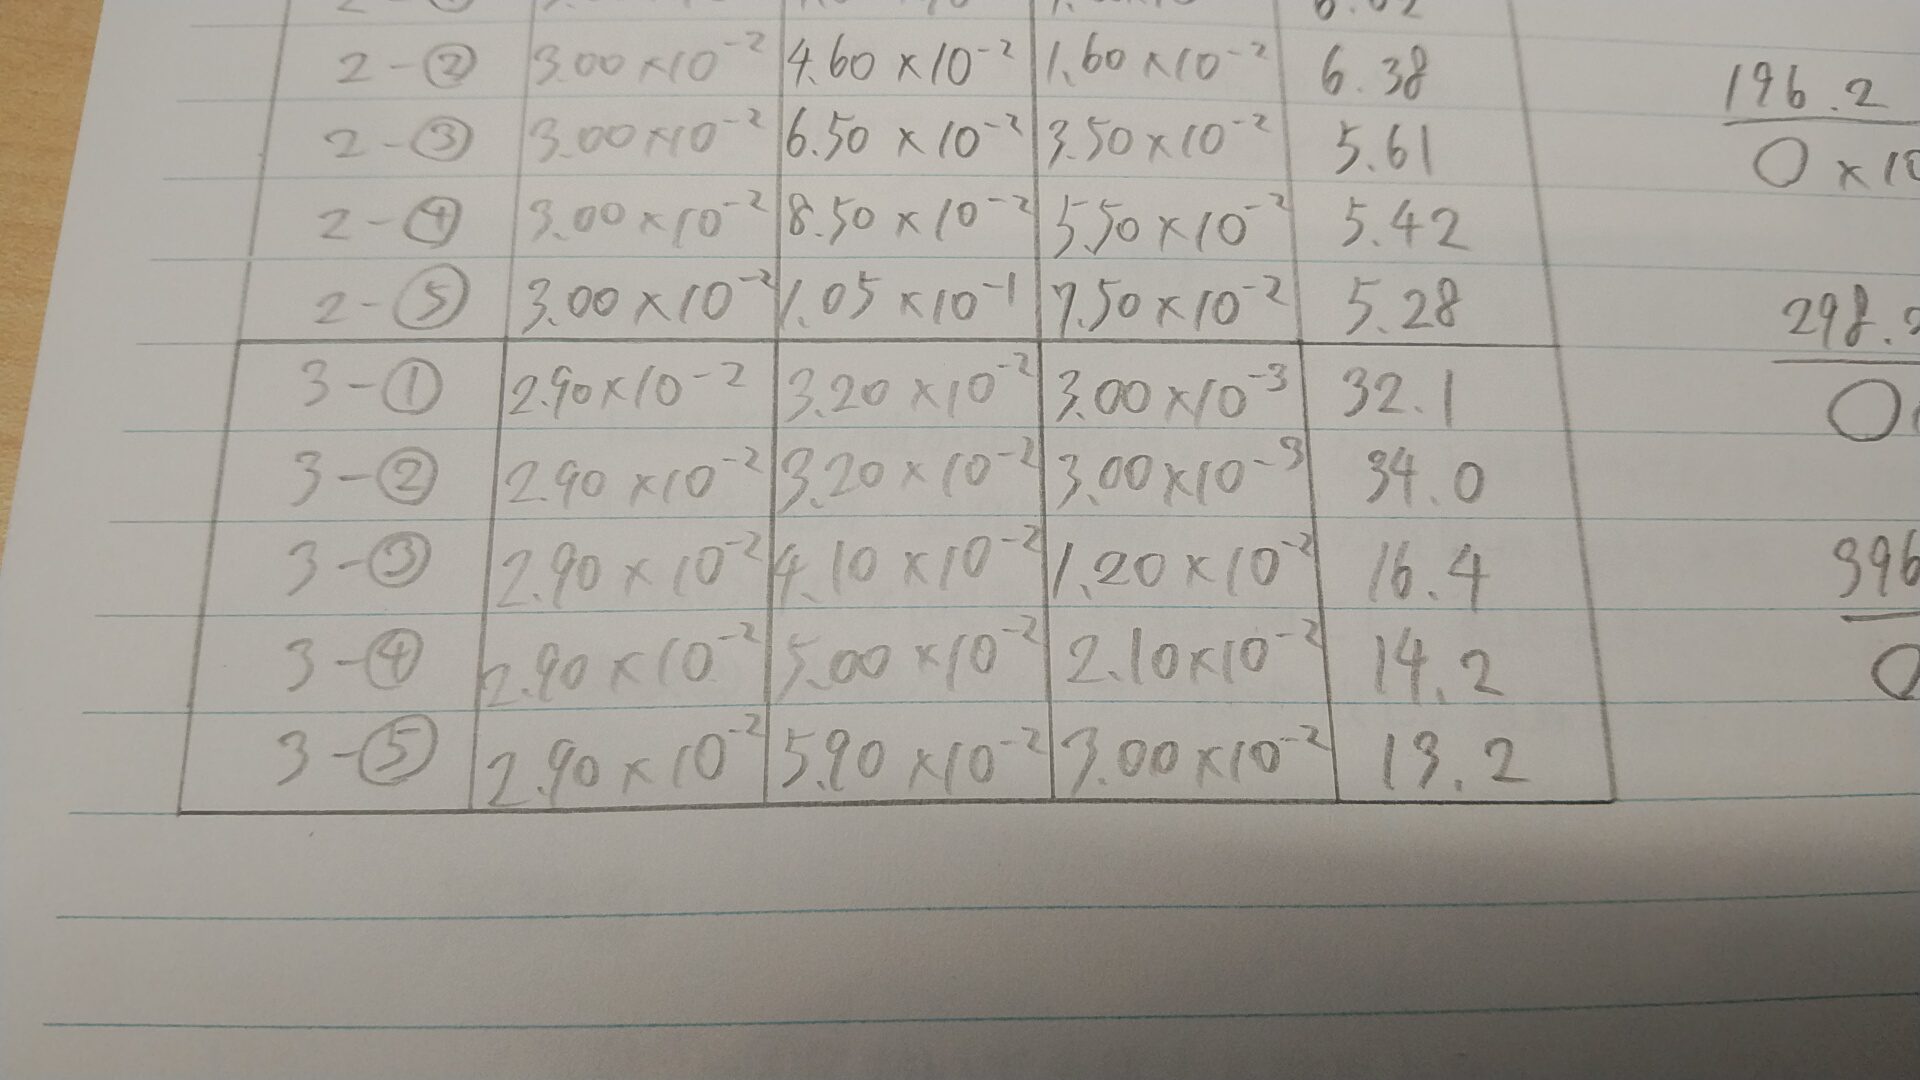 2-② 3.00×10⁻² 4.60×10⁻² 1.60×10⁻² 6.38
196.2
2-③ 3.00×10⁻² 6.50×10⁻² 3.50×10⁻² 5.61
0×10
2-④ 3.00×10⁻² 8.50×10⁻² 5.50×10⁻² 5.42
2-⑤ 3.00×10⁻² 1.05×10⁻¹ 7.50×10⁻² 5.28
298.
3-① 2.90×10⁻² 3.20×10⁻² 3.00×10⁻³ 32.1
0
3-② 2.90×10⁻² 3.20×10⁻² 3.00×10⁻³ 34.0
3-③ 2.90×10⁻² 4.10×10⁻² 1.20×10⁻² 16.4
396
3-④ 2.90×10⁻² 5.00×10⁻² 2.10×10⁻² 14.2
0
3-⑤ 2.90×10⁻² 5.90×10⁻² 3.00×10⁻² 13.2